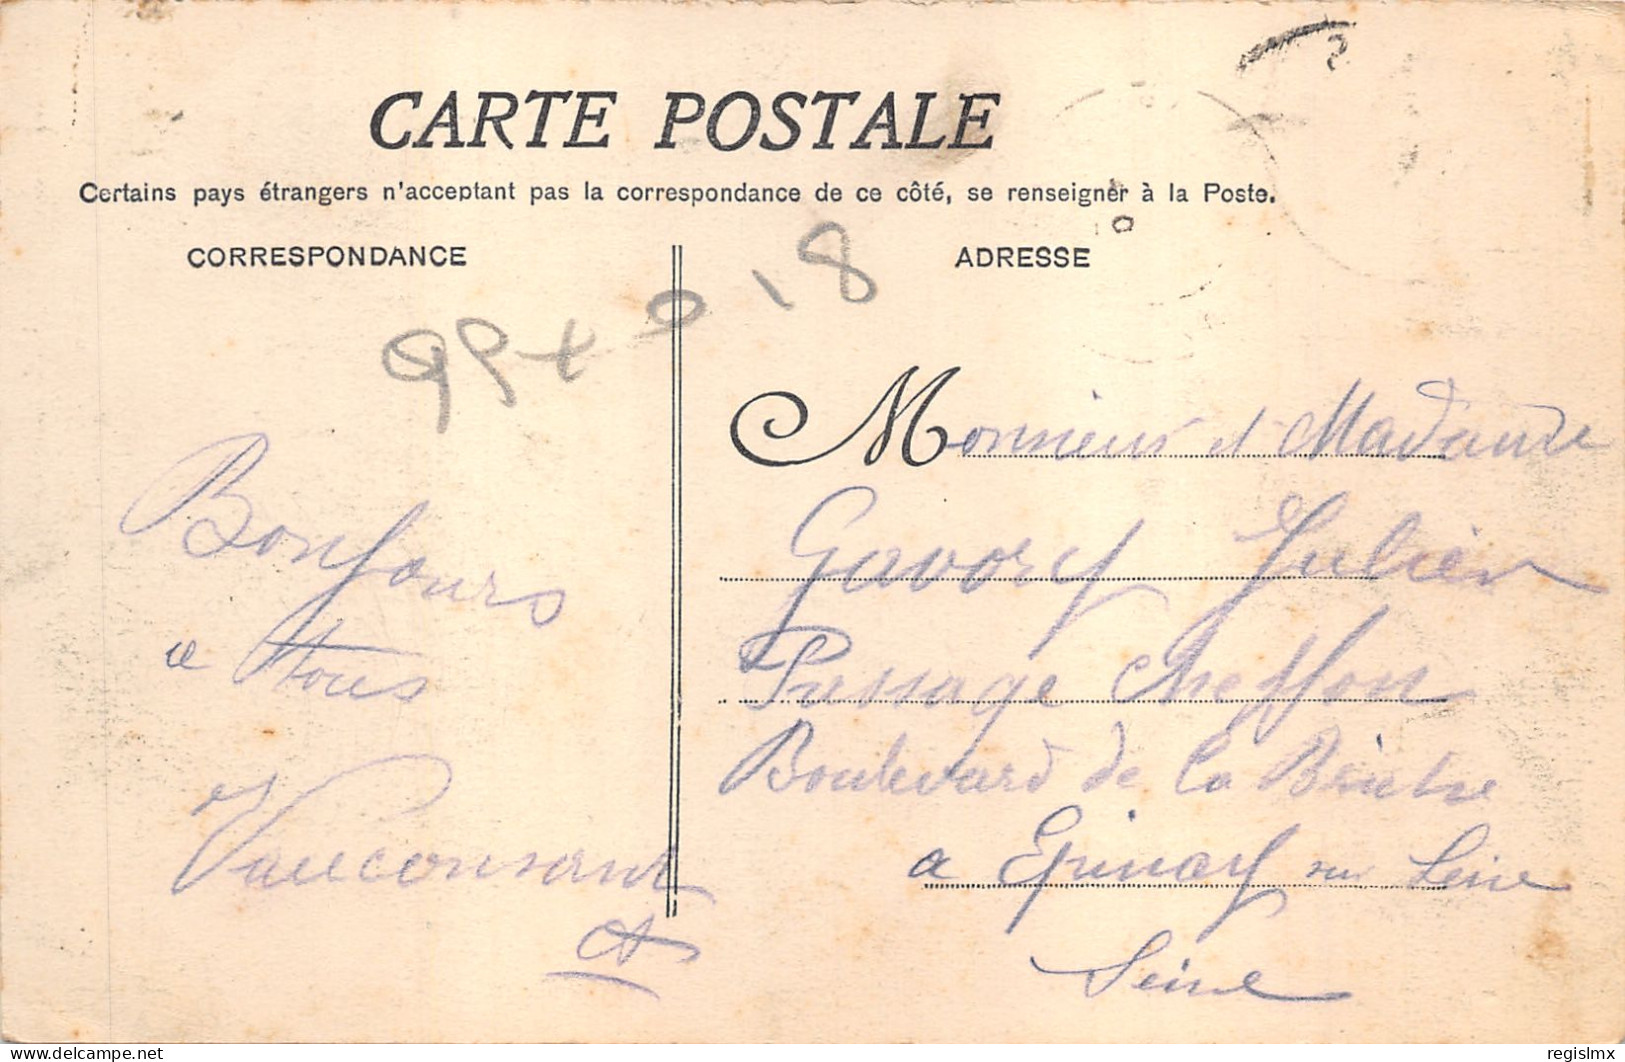 CARTE POSTALE
Certains pays étrangers n'acceptant pas la correspondance de ce côté, se renseigner à la Poste.
CORRESPONDANCE
ADRESSE
18
Bonjours
a tous
Vauconsant
Monsieur et Madame
Gavory Julien
Passage Cheffon
Boulevard de la
a Epinay sur Seine
Seine
delcampe.net
regislmx